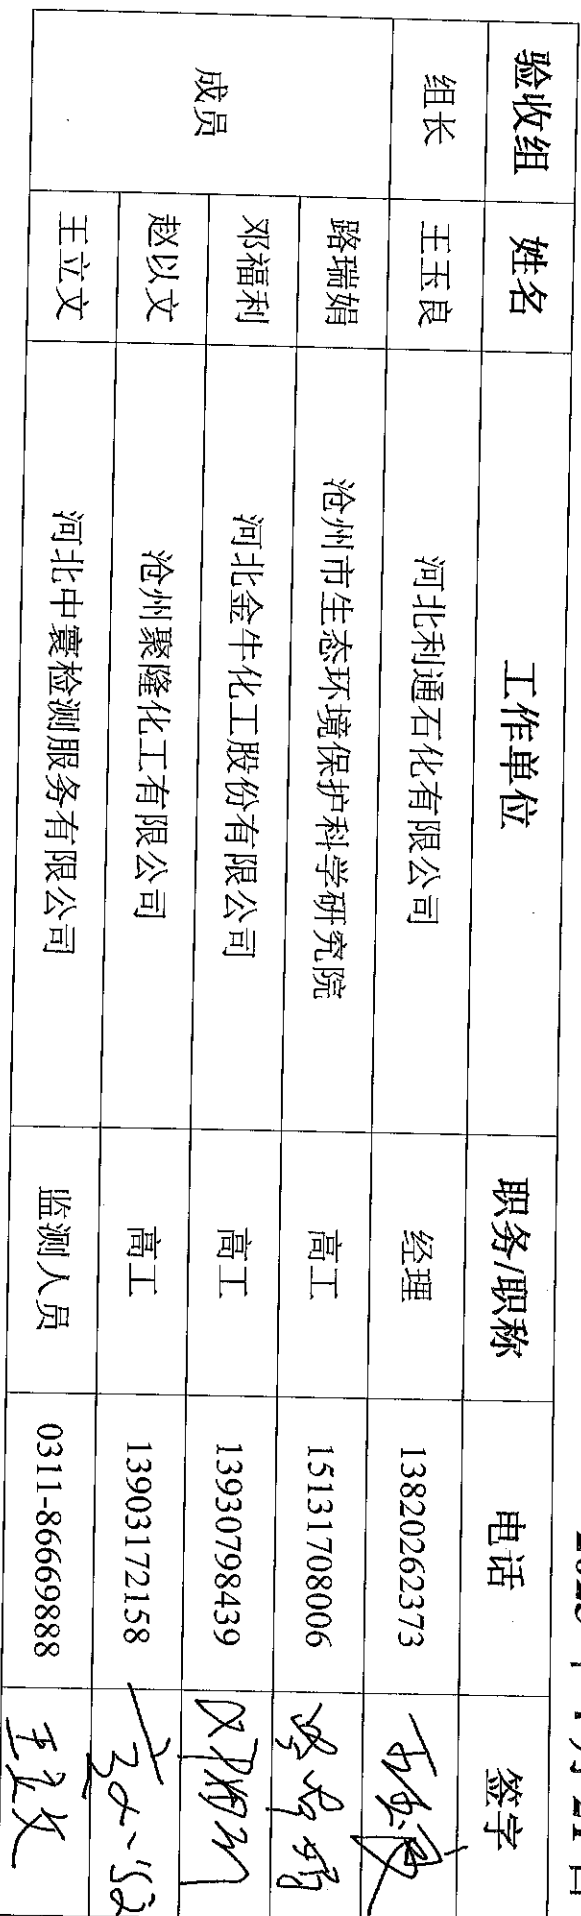 验收组 姓名 工作单位 职务/职称 电话 签字
组长 王玉良 河北利通石化有限公司 经理 13820262373
成员 路瑞娟 沧州市生态环境保护科学研究院 高工 15131708006
邓福利 河北金牛化工股份有限公司 高工 13930798439
赵以文 沧州聚隆化工有限公司 高工 13903172158
王立文 河北中寰检测服务有限公司 监测人员 0311-86669888 王立文